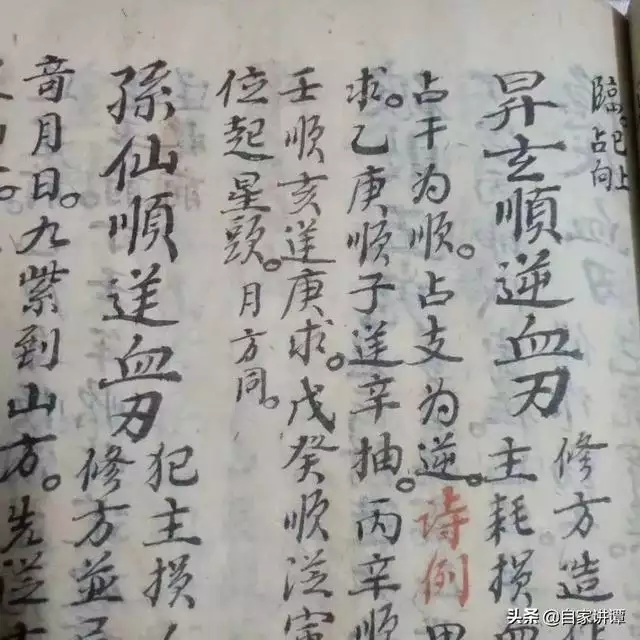 占向
昇玄順逆血刃
修方造
主耗損血
占干为順。占支为逆。诗例
求。乙庚順子逆辛抽。丙辛順
壬順亥逆庚求。戊癸順從寅
位起星頭。月方同。
孫仙順逆血刃
犯主損
修方並忌
音月日。九紫到山方。先從
头条 @自家讲谭